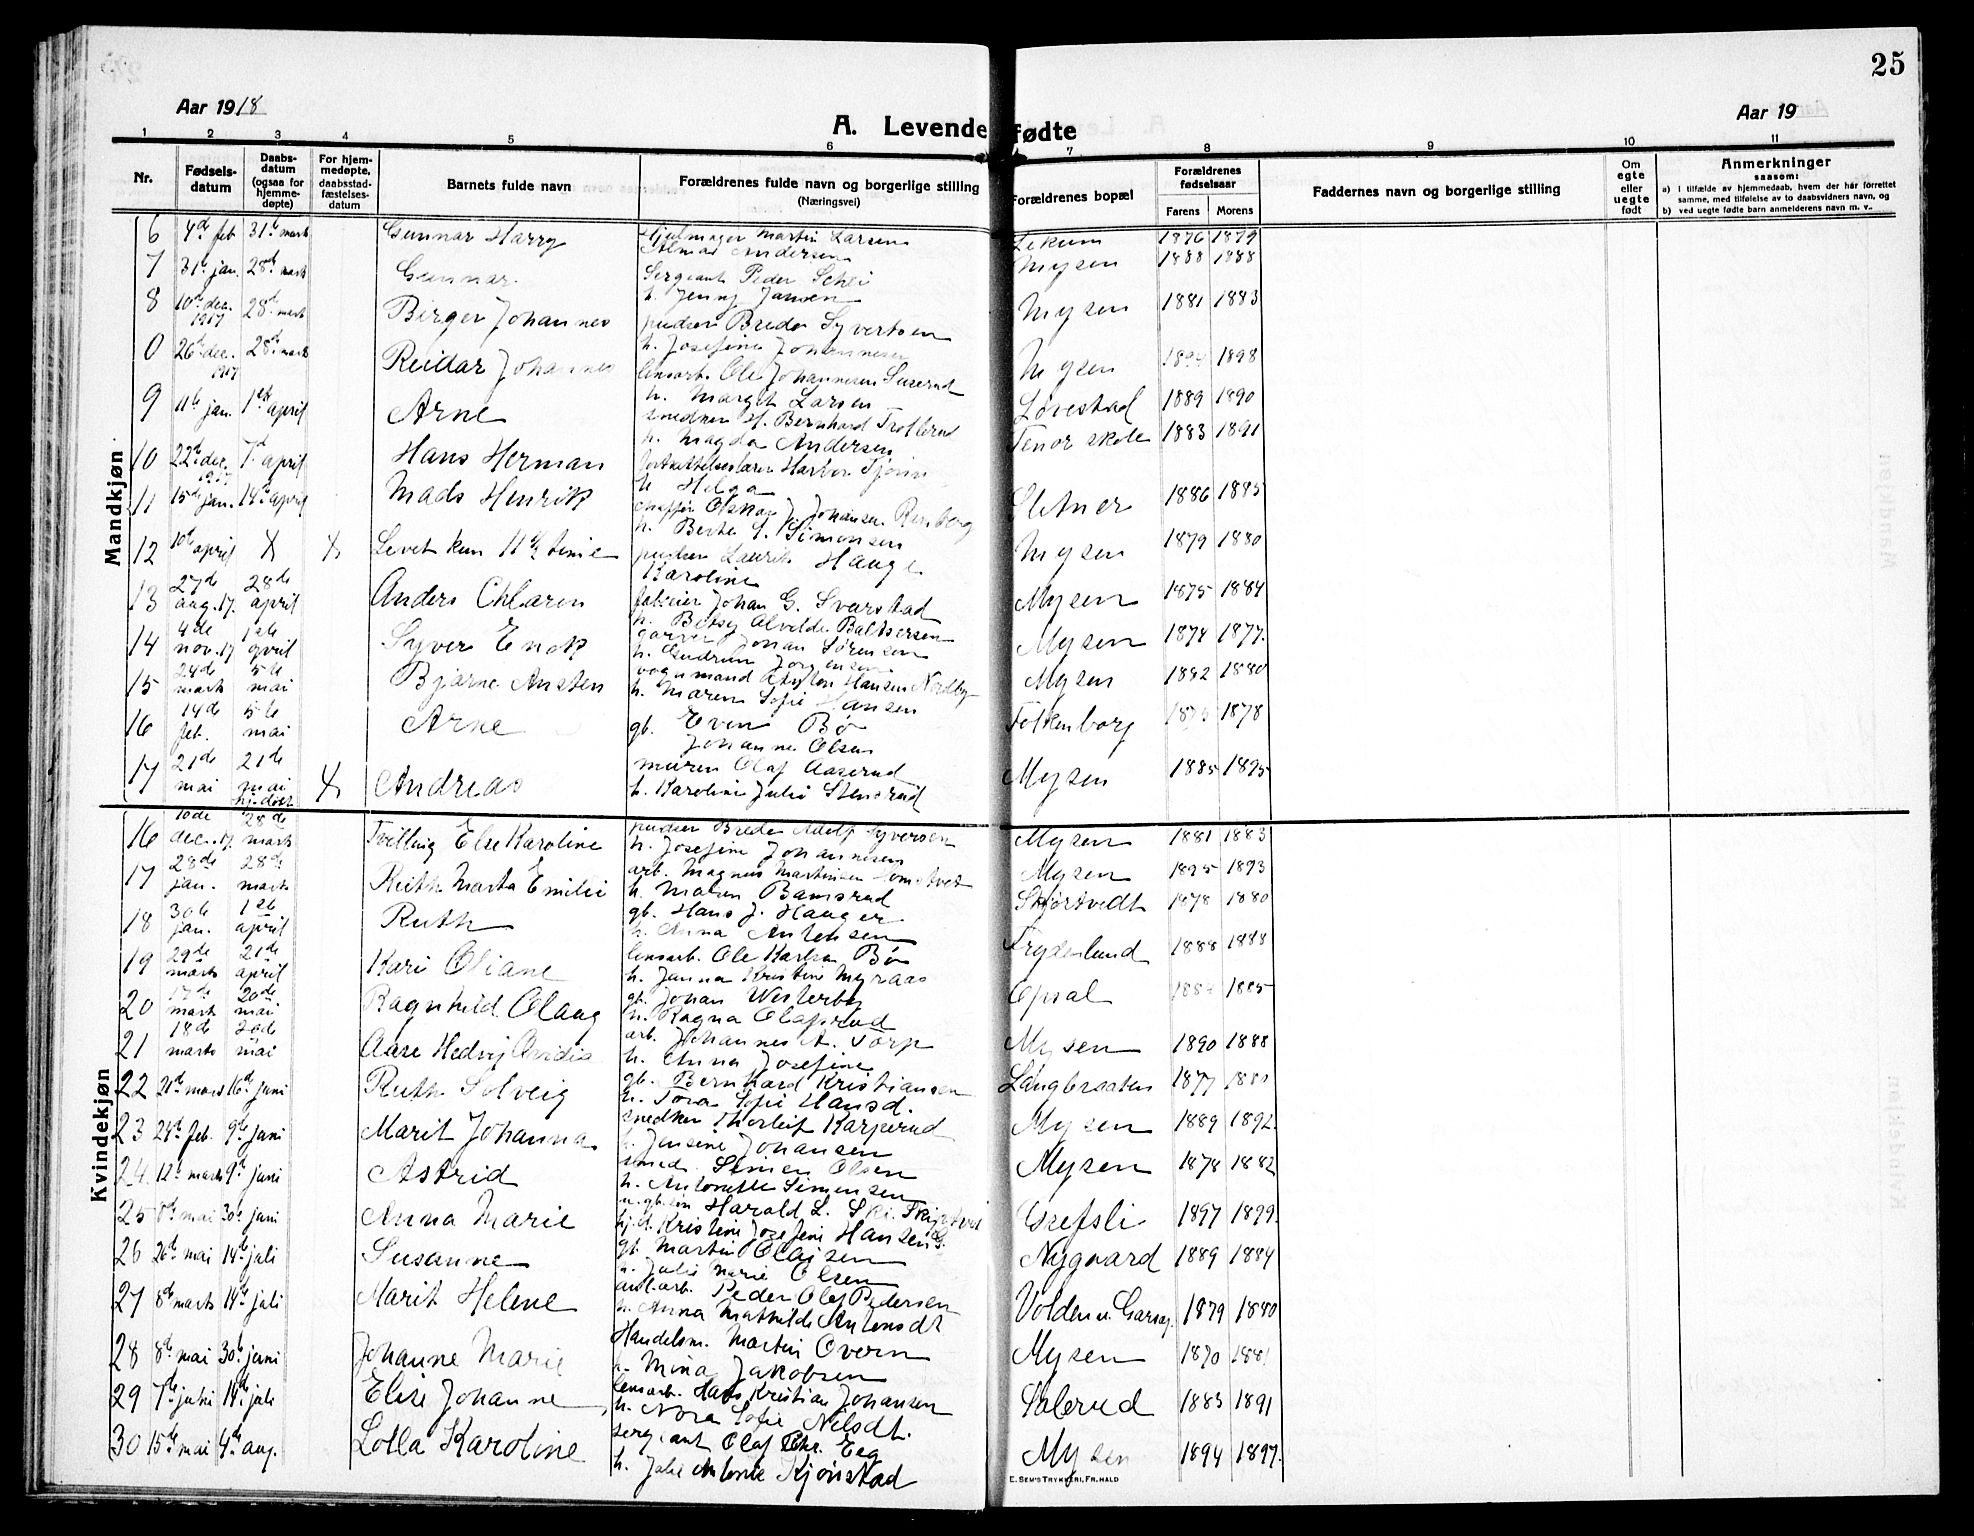 25
Aar 1918
Aar 19
A. Levende fødte
1 2 3 4 5 6 7 8 9 10 11
Nr.
Fødsels-datum
Daabs-datum (ogsaa for hjemme-døpte)
For hjem-medøpte, daabsstad-fæstelses-datum
Barnets fulde navn
Forældrenes fulde navn og borgerlige stilling (Næringsvei)
Forældrenes bopæl
Forældrenes fødselsaar
Farens Morens
Faddernes navn og borgerlige stilling
Om egte eller uegte født
Anmerkninger
saasom:
a) i tilfælde av hjemmedaab, hvem der har forrettet samme, med tilføielse av to daabsvidners navn, og
b) ved uegte fødte barn anmelderens navn m. v.
Mandkjøn
6 4de feb 31te marts Gunnar Harry Hjulmager Martin Larsen Lekum 1876 1879
Almar Andersen
7 31te jan. 28de marts Gunnar. Sergeant Peder Schei Mysen 1888 1888
h. Jenny Jansen
8 10de dec. 1917 28de marts Birger Johannes pudser Breder Syvertsen Mysen 1881 1883
h. Josefine Johannesen
0 26de dec. 1917 28de marts Reidar Johannes leusarb. Ole Johannesen Mysen 1898
h. Margit Larsen
9 11te jan. 1ste april Arne snedker H. Bernhard Trollerud Løvestad 1889 1890
h. Magda Andersen
10 22de dec. 1917 7de april Hans Herman Tenor skole 1883 1891
h. Helga
11 15de jan. 14de april Mads Henrik chaffør Oskar J. Johansen Slitner 1886 1885
h. Berte S. Simonsen
12 10de april X X Levet kun 11 1/2 time pudser Laurits Hauge Mysen 1879 1880
Karoline
13 27de aug. 17. 28de april Anders Chlaren fab.eier Johan G. Svarstad Mysen 1875 1884
h. Betsy Alvilde Baltsersen
14 4de nov. 17 1ste april Syver Enok garver Johan Sørensen Mysen 1874 1877.
h. Gudrun Jørgensen
15 24de marts 5te mai Bjarne Ansten vognmand Anton Hansen Nordby Mysen 1882 1880
h. Maren Sofie Hansen
16 14de feb. 5te mai Arne gb. Even Bø Folkenborg 1878
Johanne Olsen
17 21de mai 21de mai hj. døbt X Andreas murer Olaf Aaserud Mysen 1885 1895
h. Karoline Julie Stensrud
Kvindekjøn
16 10de dec. 17. 28de marts Tvilling Else Karoline pudser Breder Adolf Syversen Mysen 1881 1883
h. Josefine Johannesen
17 28de jan. 28de marts Ruth Marta Emilie arb. Magnus Martinsen Mysen 1895 1893
h. Maren Bamsrud
18 30te jan. 1ste april Ruth gb. Hans J. Haager Skjørtvedt 1878 1880
h. Anna Antensen
19 29de marts 21de april Kari Oliane leusarb. Ole Karlsen Bø Frydenlund 1888 1888
h. Janna Kristine Myraas
20 17de marts 20de mai Ragnhild Olaug gb. Johan Westerby Opsal 1885
h. Ragna Olafsrud
21 18de marts 20de mai Aase Hedvig Ovidia arb. Johannes A. Torp Mysen 1890 1888
h. Anna Josefine
22 21de mars 16de juni Ruth Solveig gb. Bernhard Kristiansen Langbraaten 1877
h. Tora Sofie Hansd.
23 24de feb. 9de juni Marit Johanna snedker Thorleif Karperud Mysen 1889 1892.
h. Jensine Johansen
24. 12te marts 9de juni Astrid smed. Simen Olsen Mysen 1878 1882
h. Antonette Simensen
25 8de mai 30te juni Anna Marie u. gb. Harald L. Ski. Grefsli 1897 1899.
hj. d. Kristine Josefine Hansen G.
26 26de mai 14de juli Susanne gb. Martin Olaisen Nygaard 1889 1884
h. Julie Marie Olsen
27 8de marts 14de juli Marit Helene anl. arb. Peder Olaf Pedersen Volden u. 1879 1880
h. Anna Mathilde Antonsdt
28 8de mai 30te juni Johanne Marie Handelsm. Martin Overn Mysen 1870 1881
h. Mina Jakobsen
29 7de juni 14de juli Elise Johanne leusarb. Hans Kristian Johansen Solerud 1883 1891
h. Nora Sofie Nilsdt.
30 15de mai 4de aug. Lolla Karoline sergeant Olaf Chr. Eeg Mysen 1894 1897.
h. Julie Antonie Kjønstad
E. SEM'S TRYKKERI, FR.HALD